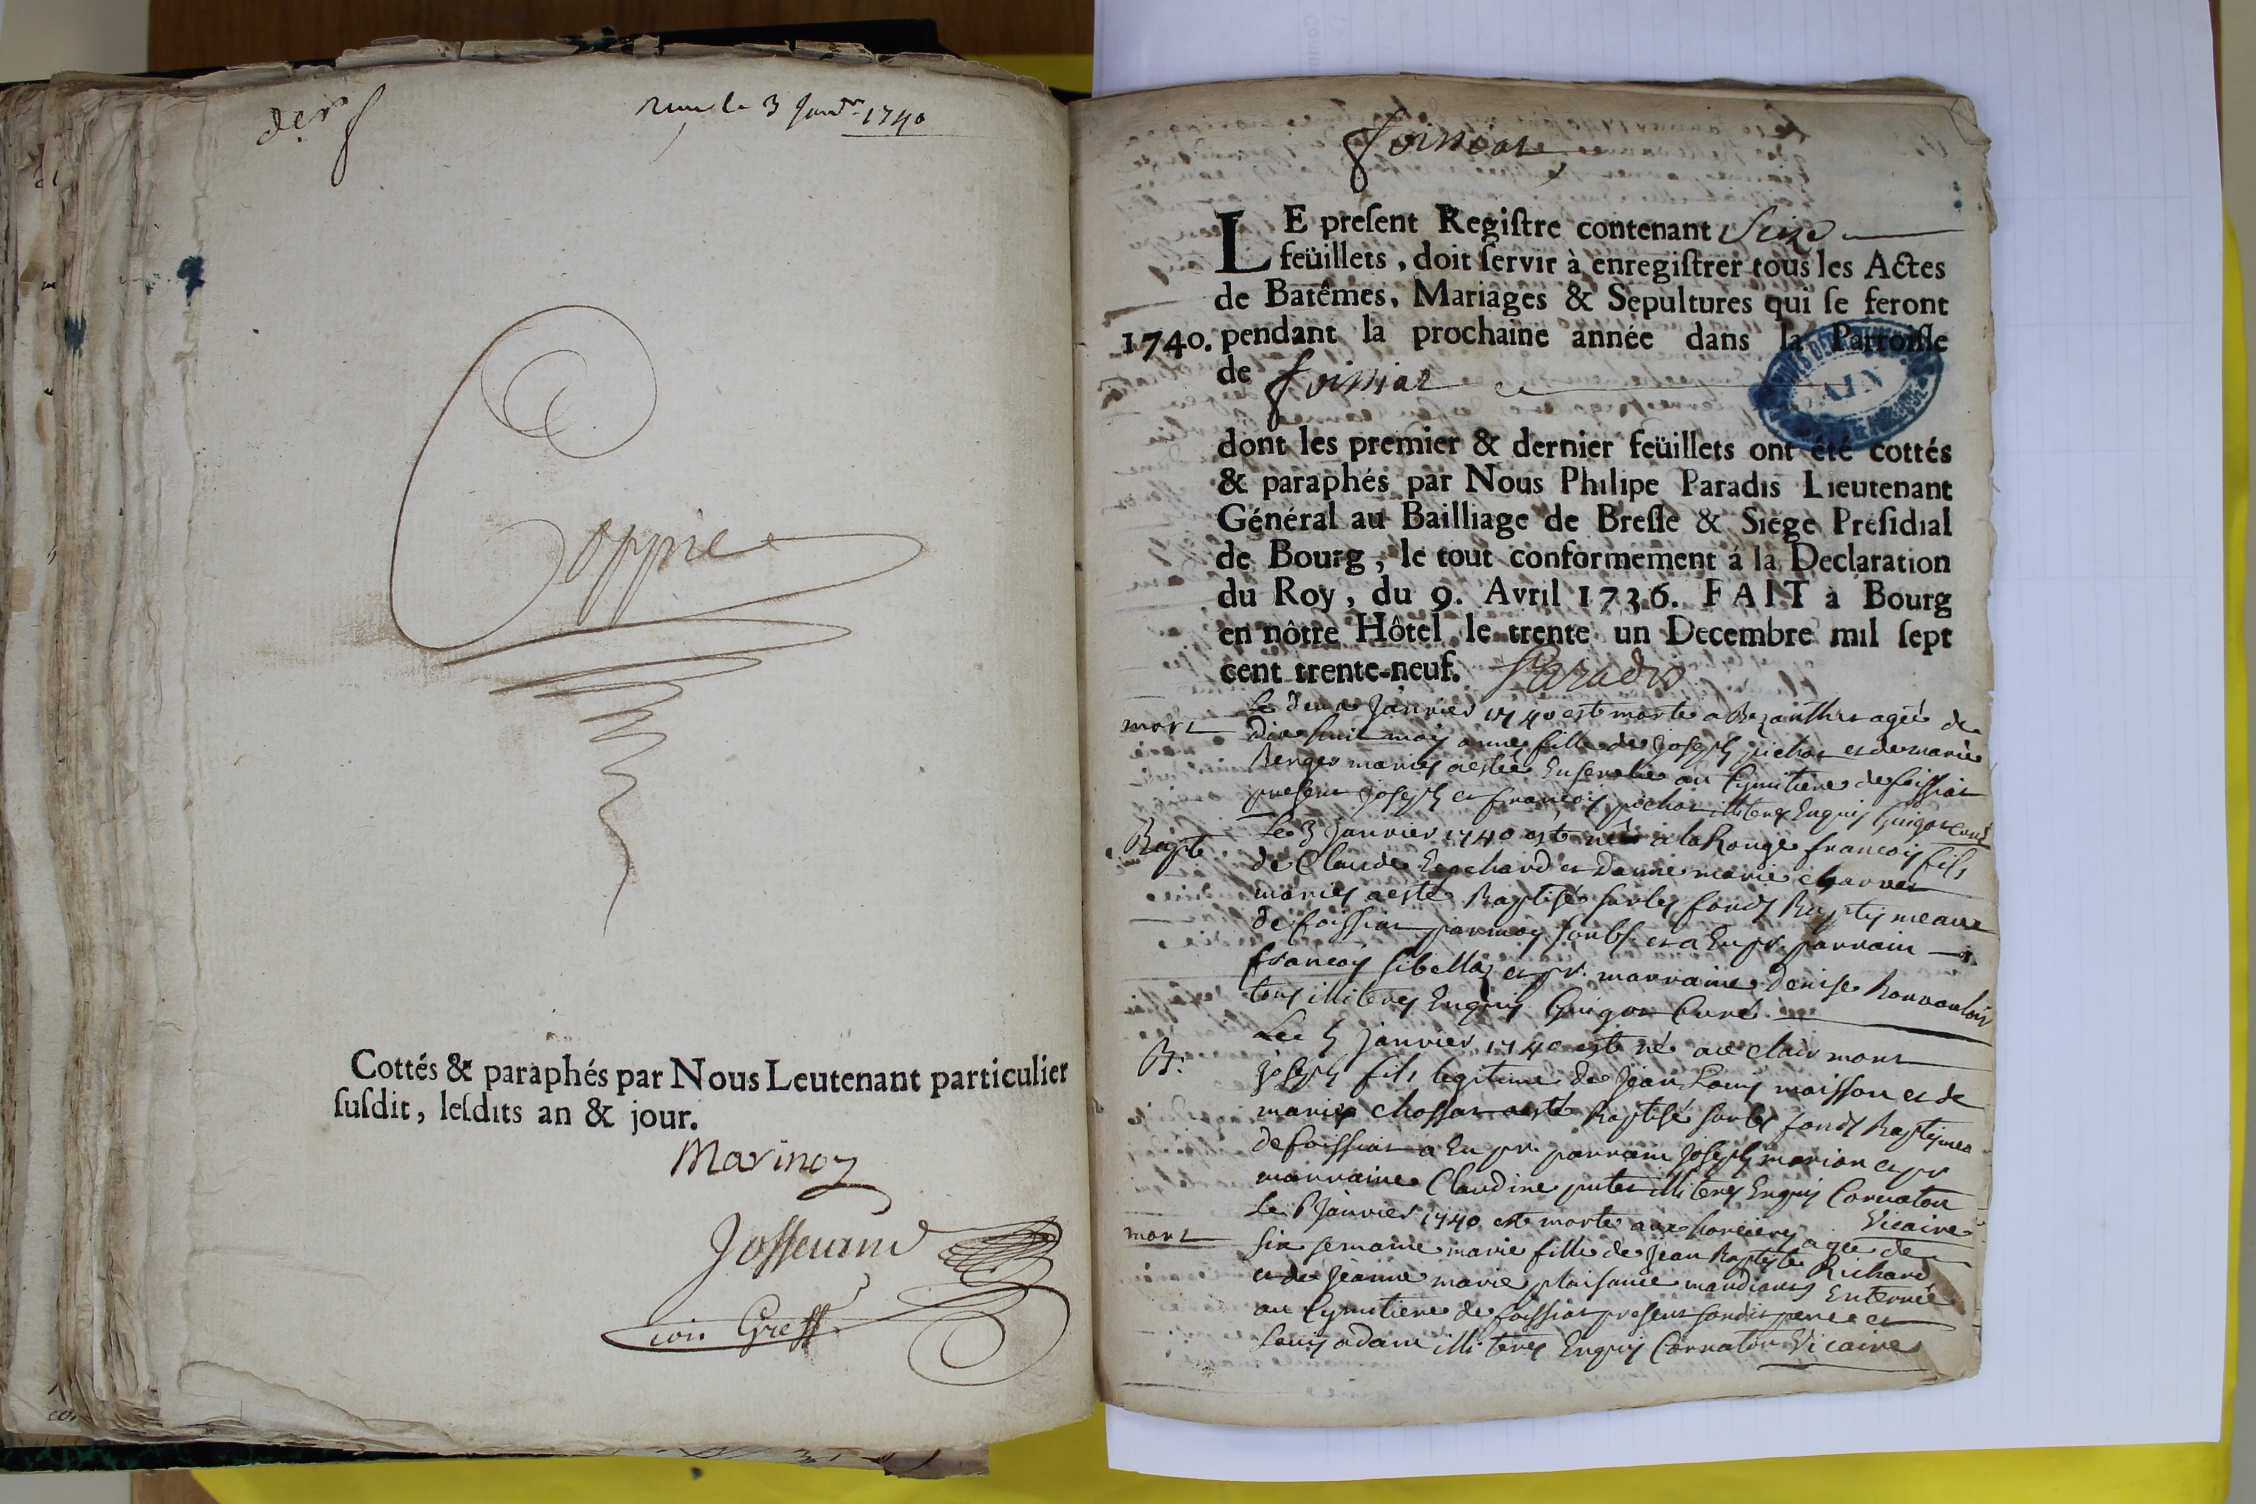 der
le 3 Janv 1740
Coppie
Cottés & paraphés par Nous Leutenant particulier
ſuſdit, leſdits an & jour.
Marinoz
Josserand
Greff
foissiat
LE preſent Regiſtre contenant Seize
feüillets, doit ſervir à enregiſtrer tous les Actes
de Batêmes, Mariages & Sepultures qui ſe feront
1740. pendant la prochaine année dans la Parroiſſe
de foissiat
AIN
dont les premier & dernier feüillets ont été cottés
& paraphés par Nous Philipe Paradis Lieutenant
Général au Bailliage de Breſſe & Siége Préſidial
de Bourg, le tout conformement á la Declaration
du Roy, du 9. Avril 1736. FAIT à Bourg
en nôtre Hôtel le trente un Decembre mil ſept
cent trente-neuf. Paradis
mort
Le deux Janvier 1740 est morte a agée de
dix huit mois anne fille de Joseph pichot et de marie
Berger mariés aesté Ensevelie au Cymitiere de foissiat
present Joseph et francois pichot illiteres Enquis Guigot curé
Bapte
Le 3 Janvier 1740 est né a la Rouge francois fils
de Claude Brochard et Danne marie charvet
mariés aesté Baptisé sur les fonds Baptismeaux
de foissiat par moy soubs. et a Eu pr. parrain
francois sibellas et pr. marraine Denise
tous illiteres Enquis Guigot Curé
B.
Le 5 Janvier 1740 est né au clairmont
Joseph fils legitime de Jean Louis moisson et de
marie chossat aesté Baptisé sur les fonds Baptismea
de foissiat a Eu pr. parrain Joseph marion et pr
marraine Claudine putet illiteres Enquis Cornaton
Vicaire
mort
Le 6 Janvier 1740 est morte aux agée de
six semaine marie fille de Jean Baptiste Richard
et de Jeanne marie plaisance mandians Enterrée
au Cymitiere de foissiat present sondit pere et
Louis adam illiteres Enquis Cornaton Vicaire